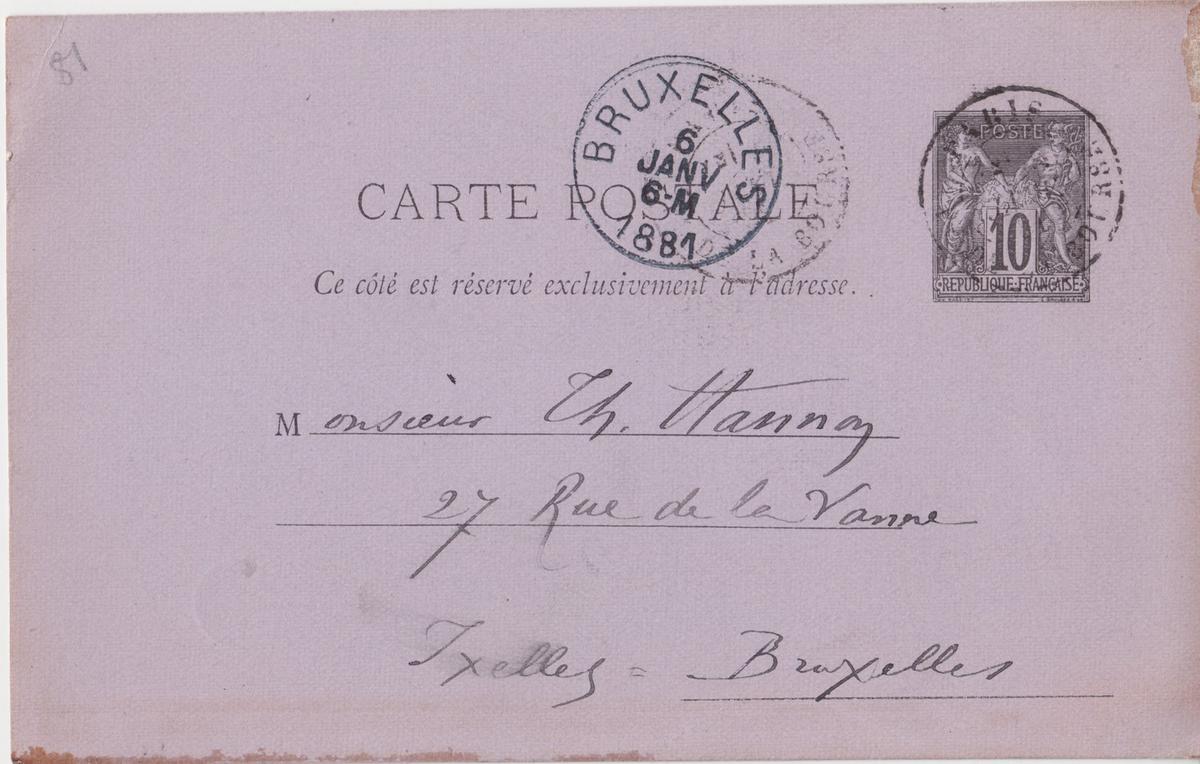 81
BRUXELLES
6
JANV
6-M
1881
PARIS
LA BOURSE
POSTE
10
REPUBLIQUE FRANÇAISE
CARTE POSTALE
Ce côté est réservé exclusivement à l'adresse.
Monsieur Th. Hannon
27 Rue de la Vanne
Ixelles = Bruxelles